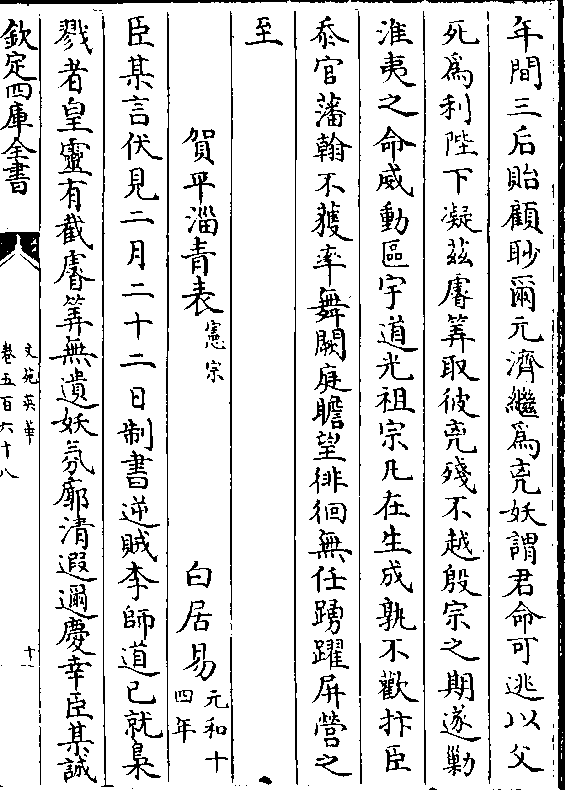 年間三后貽顧眇爾元濟繼為兇妖謂君命可逃以父
死為利陛下凝茲睿筭取彼兇殘不越殷宗之期遂勦
淮夷之命威動區宇道光祖宗凡在生成孰不歡抃臣
忝官藩翰不獲率舞闕庭瞻望徘徊無任踴躍屏營之
至
賀平淄青表憲宗 白居易元和十四年
臣某言伏見二月二十二日制書逆賊李師道已就梟
戮者皇靈有截睿筭無遺妖氛廓清遐邇慶幸臣某誠
欽定四庫全書
文苑英華
卷五百六十八
十一